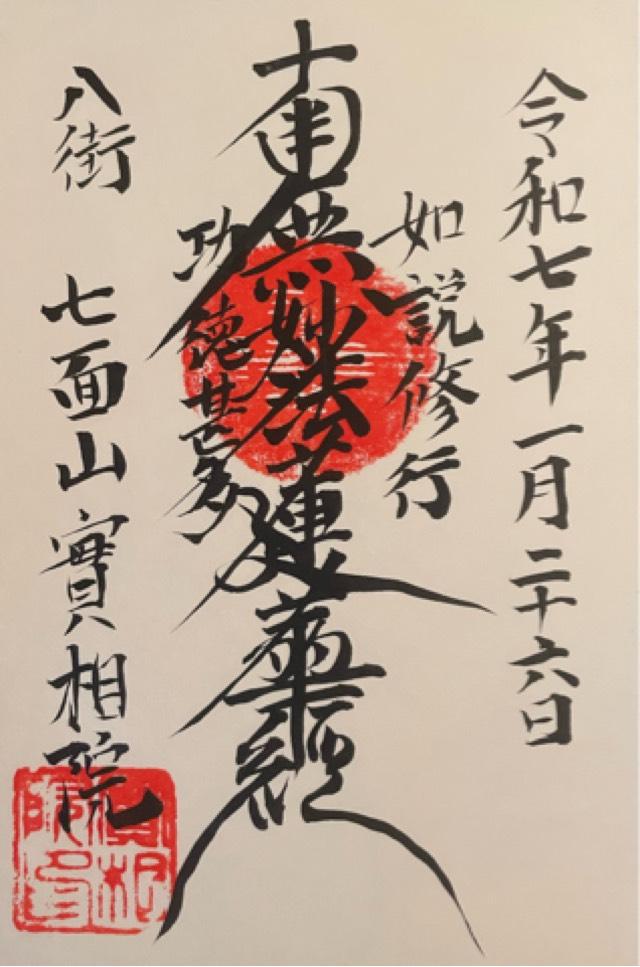 令和七年一月二十六日
如説修行
南無妙法蓮華經
功徳甚多
八街 七面山實相院